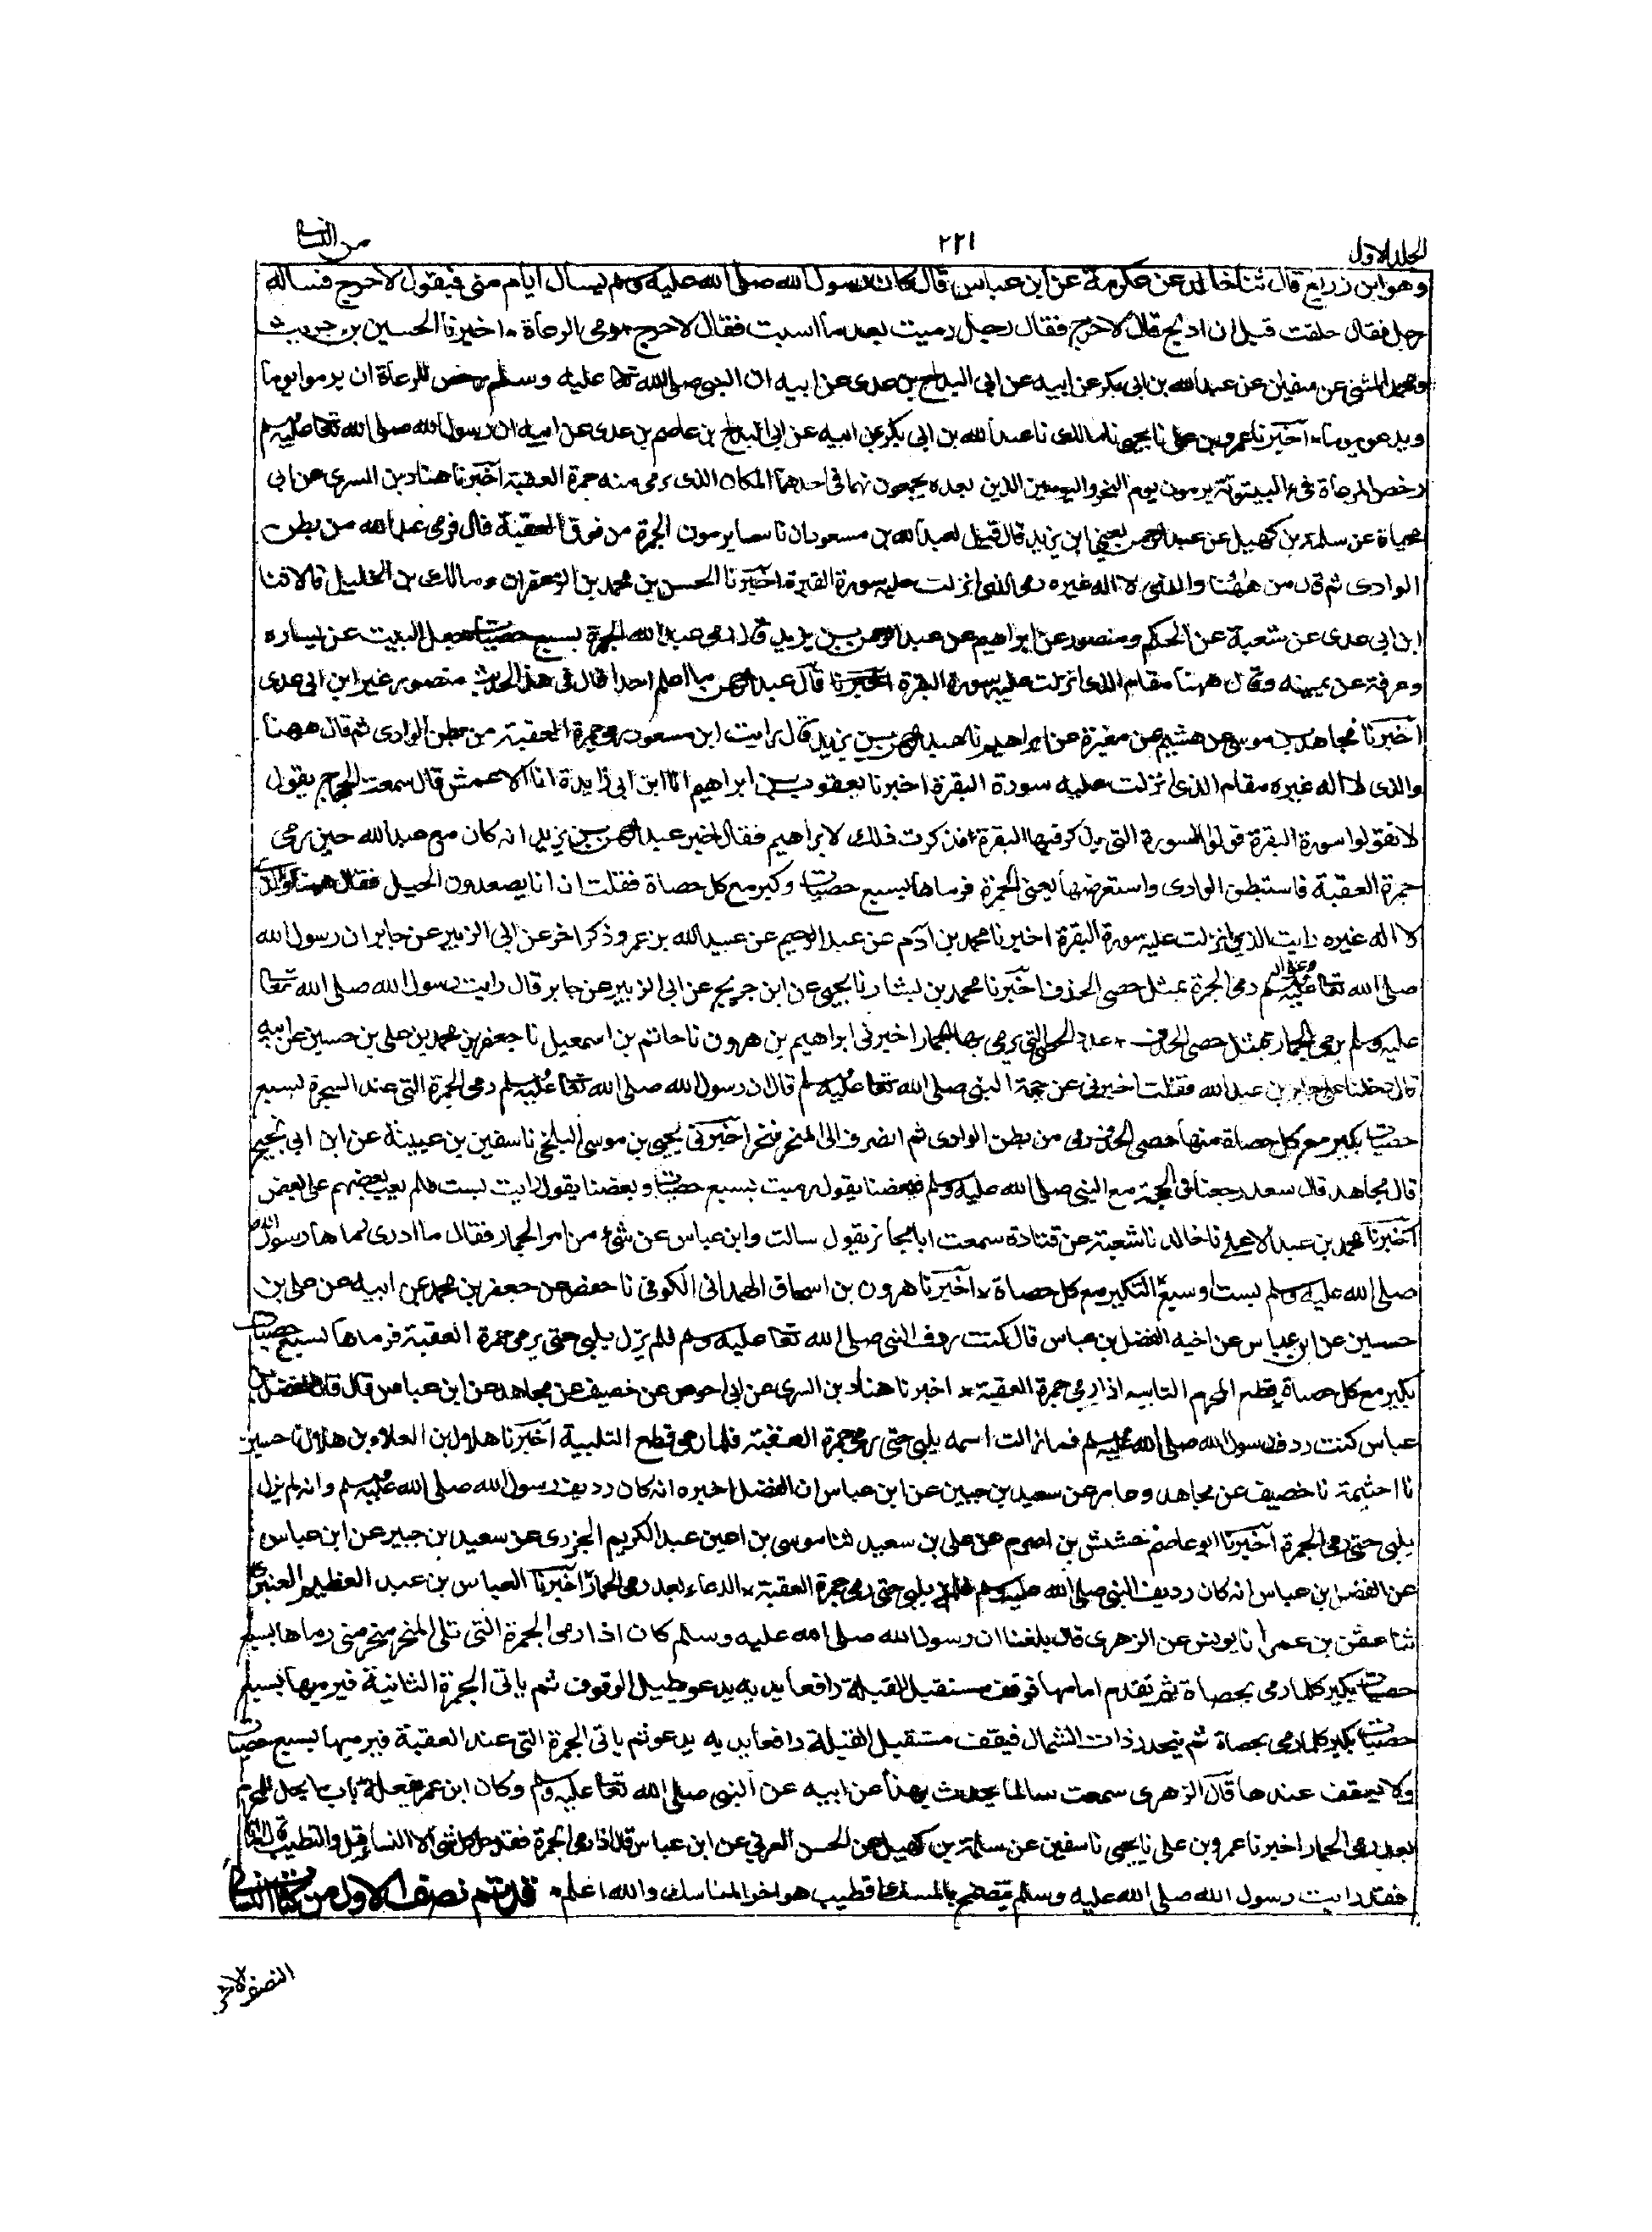 الجلد الاول
٢٢١
من النسائی
وهو ابن زریع قال ثنا خالد عن عکرمة عن ابن عباس قال کان رسول الله صلی الله علیه وسلم یسأل ایام منی فیقول لا حرج فساله
رجل فقال حلقت قبل ان اذبح قال لا حرج فقال رجل رمیت بعد ما امسیت فقال لا حرج * رمی الرعاة * اخبرنا الحسین بن حریث
ومحمد المثنی عن سفین عن عبد الله بن ابی بکر عن ابیه عن ابی البداح بن عدی عن ابیه ان النبی صلی الله تعا علیه وسلم رخص للرعاة ان یرموا یوما
ویدعو یوما * اخبرنا عمرو بن علی نا یحیی نا مالک نا عبد الله بن ابی بکر عن ابیه عن ابی البداح بن عاصم بن عدی عن ابیه ان رسول الله صلی الله تعا علیه وسلم
رخص للرعاة فی البیتوتة یرمون یوم النحر والیومین الذین بعده یجمعونهما فی احدهما المکان الذی یرمی منه جمرة العقبة اخبرنا هناد بن السری عن ابی
محیاة عن سلمة بن کهیل عن عبد الرحمن یعنی ابن یزید قال قیل لعبد الله بن مسعود ان ناسا یرمون الجمرة من فوق العقبة قال فرمی عبد الله من بطن
الوادی ثم قال من ههنا والذی لا اله غیره رمی الذی انزلت علیه سورة البقرة اخبرنا الحسن بن محمد بن الزعفران ومالک بن الخلیل قالا ثنا
ابن ابی عدی عن شعبة عن الحکم ومنصور عن ابراهیم عن عبد الرحمن بن یزید قال رمی عبد الله الجمرة بسبع حصیات جعل البیت عن یساره
وعرفة عن یمینه وقال ههنا مقام الذی انزلت علیه سورة البقرة اخبرنا قال عبد الرحمن ما اعلم احدا قال فی هذا الحدیث منصور غیر ابن ابی عدی
اخبرنا مجاهد بن موسی عن هشیم عن مغیرة عن ابراهیم نا عبد الرحمن بن یزید قال رایت ابن مسعود رمی جمرة العقبة من بطن الوادی ثم قال ههنا
والذی لا اله غیره مقام الذی انزلت علیه سورة البقرة اخبرنا یعقوب بن ابراهیم انا ابن ابی زایدة انا الاعمش قال سمعت الحجاج یقول
لا تقولوا سورة البقرة قولوا السورة التی یذکر فیها البقرة فذکرت ذلک لابراهیم فقال اخبر عبد الرحمن بن یزید انه کان مع عبد الله حین رمی
جمرة العقبة فاستبطن الوادی واستعرضها یعنی الجمرة فرماها بسبع حصیات وکبر مع کل حصاة فقلت ان انا یصعدون الجبل فقال ههنا والذی
لا اله غیره رایت الذی انزلت علیه سورة البقرة اخبرنا محمد بن ادم عن عبد الرحیم عن عبید الله بن عمر وذکر اخر عن ابی الزبیر عن جابر ان رسول الله
صلی الله تعا علیه وعلی اله وسلم رمی الجمرة بمثل حصی الخذف اخبرنا محمد بن بشار نا یحیی عن ابن جریج عن ابی الزبیر عن جابر قال رایت رسول الله صلی الله تعا
علیه وسلم یرمی الجمار بمثل حصی الخذف * عدد الحصی التی یرمی بها الجمار اخبرنی ابراهیم بن هرون نا حاتم بن اسمعیل نا جعفر بن محمد بن علی بن حسین عن ابیه
قال دخلنا علی جابر بن عبد الله فقلت اخبرنی عن حجة النبی صلی الله تعا علیه وسلم قال ان رسول الله صلی الله تعا علیه وسلم رمی الجمرة التی عند الشجرة بسبع
حصیات یکبر مع کل حصاة منها حصی الخذف رمی من بطن الوادی ثم انصرف الی المنحر فنحر اخبرنی یحیی بن موسی البلخی نا سفین بن عیینة عن ابن ابی نجیح
قال مجاهد قال سعد رجعنا فی الحجة مع النبی صلی الله علیه وسلم فبعضنا یقول رمیت بسبع حصیات وبعضنا یقول رمیت بست فلم یعب بعضهم علی بعض
اخبرنا محمد بن عبد الاعلی نا خالد نا شعبة عن قتادة سمعت ابا مجلز یقول سالت وابن عباس عن شئ من امر الجمار فقال ما ادری رماها رسول الله
صلی الله علیه وسلم بست او سبع التکبیر مع کل حصاة * اخبرنا هرون بن اسحاق الهمدانی الکوفی نا حفص عن جعفر بن محمد عن ابیه عن علی بن
حسین عن ابن عباس عن اخیه الفضل بن عباس قال کنت ردف النبی صلی الله تعا علیه وسلم فلم یزل یلبی حتی یرمی جمرة العقبة فرماها بسبع حصیات
یکبر مع کل حصاة قطع المحرم التلبیه اذا رمی جمرة العقبة * اخبرنا هناد بن السری عن ابی احوص عن خصیف عن مجاهد عن ابن عباس قال قال الفضل بن
عباس کنت ردف رسول الله صلی الله علیه وسلم فما زالت اسمه یلبی حتی رمی جمرة العقبة فلما رمی قطع التلبیة اخبرنا هلال بن العلاء بن هلال نا حسین
نا ابو خثیمة نا خصیف عن مجاهد وعامر عن سعید بن جبیر عن ابن عباس ان الفضل اخبره انه کان ردیف رسول الله صلی الله علیه وسلم وانه لم یزل
یلبی حتی رمی الجمرة اخبرنا ابو عاصم خشیش بن اصرم عن علی بن سعید ثنا موسی بن اعین عبد الکریم الجزری عن سعید بن جبیر عن ابن عباس
عن الفضل بن عباس انه کان ردیف النبی صلی الله علیه وسلم فلم یزل یلبی حتی رمی جمرة العقبة * الدعاء بعد رمی الجمار اخبرنا العباس بن عبد العظیم العنبری
ثنا عثمن بن عمر انا یونس عن الزهری قال بلغنا ان رسول الله صلی الله علیه وسلم کان اذا رمی الجمرة التی تلی المنحر منحر منی رماها بسبع
حصیات یکبر کلما رمی بحصاة ثم تقدم امامها فوقف مستقبل القبلة رافعا یدیه یدعو یطیل الوقوف ثم یاتی الجمرة الثانیة فیرمیها بسبع
حصیات یکبر کلما رمی بحصاة ثم ینحدر ذات الشمال فیقف مستقبل القبلة رافعا یدیه یدعو ثم یاتی الجمرة التی عند العقبة فیرمیها بسبع حصیات
ولا یقف عندها قال الزهری سمعت سالما یحدث بهذا عن ابیه عن النبی صلی الله تعا علیه وسلم وکان ابن عمر یفعلة باب ما یحل للمحرم
بعد رمی الجمار اخبرنا عمرو بن علی نا یحیی نا سفین عن سلمة بن کهیل عن الحسن العرنی عن ابن عباس قال اذا رمی الجمرة فقد حل کل شئ الا النساء قیل والطیب قال اما انا
فقد رایت رسول الله صلی الله علیه وسلم یتضمخ بالمسک افطیب هو اخر المناسک والله اعلم * قد تم نصف الاول من کتاب النسائی
النصف الاخر